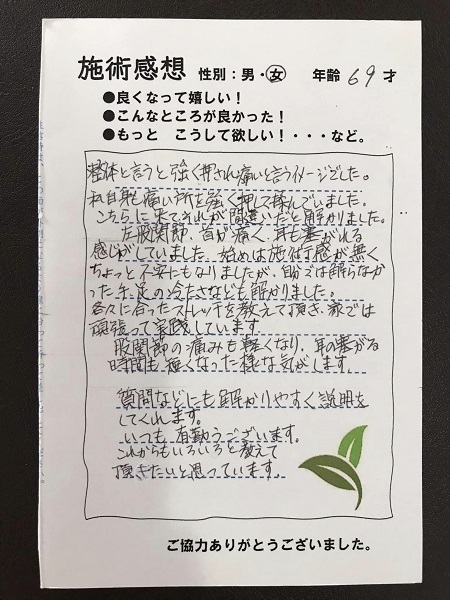 施術感想 性別：男・女 年齢 69 才
●良くなって嬉しい！
●こんなところが良かった！
●もっと こうして欲しい！・・・など。
整体と言うと強く押され痛いと言うイメージでした。
私自身も痛い所を強く押して揉んでいました。
こちらに来てそれが間違いだと解かりました。
左股関節、首が痛く、耳も塞がれる
感じがしていました。始めは施術感が無く
ちょっと不安にもなりましたが、自分では解らなか
った手、足の冷たさなども解かりました。
各々に合ったストレッチを教えて頂き、家では
頑張って実践しています。
股関節の痛みも軽くなり、耳の塞がる
時間も短くなった様な気がします。
質問などにも解かりやすく説明を
してくれます。
いつも有難うございます。
これからもいろいろと教えて
頂きたいと思っています。
ご協力ありがとうございました。